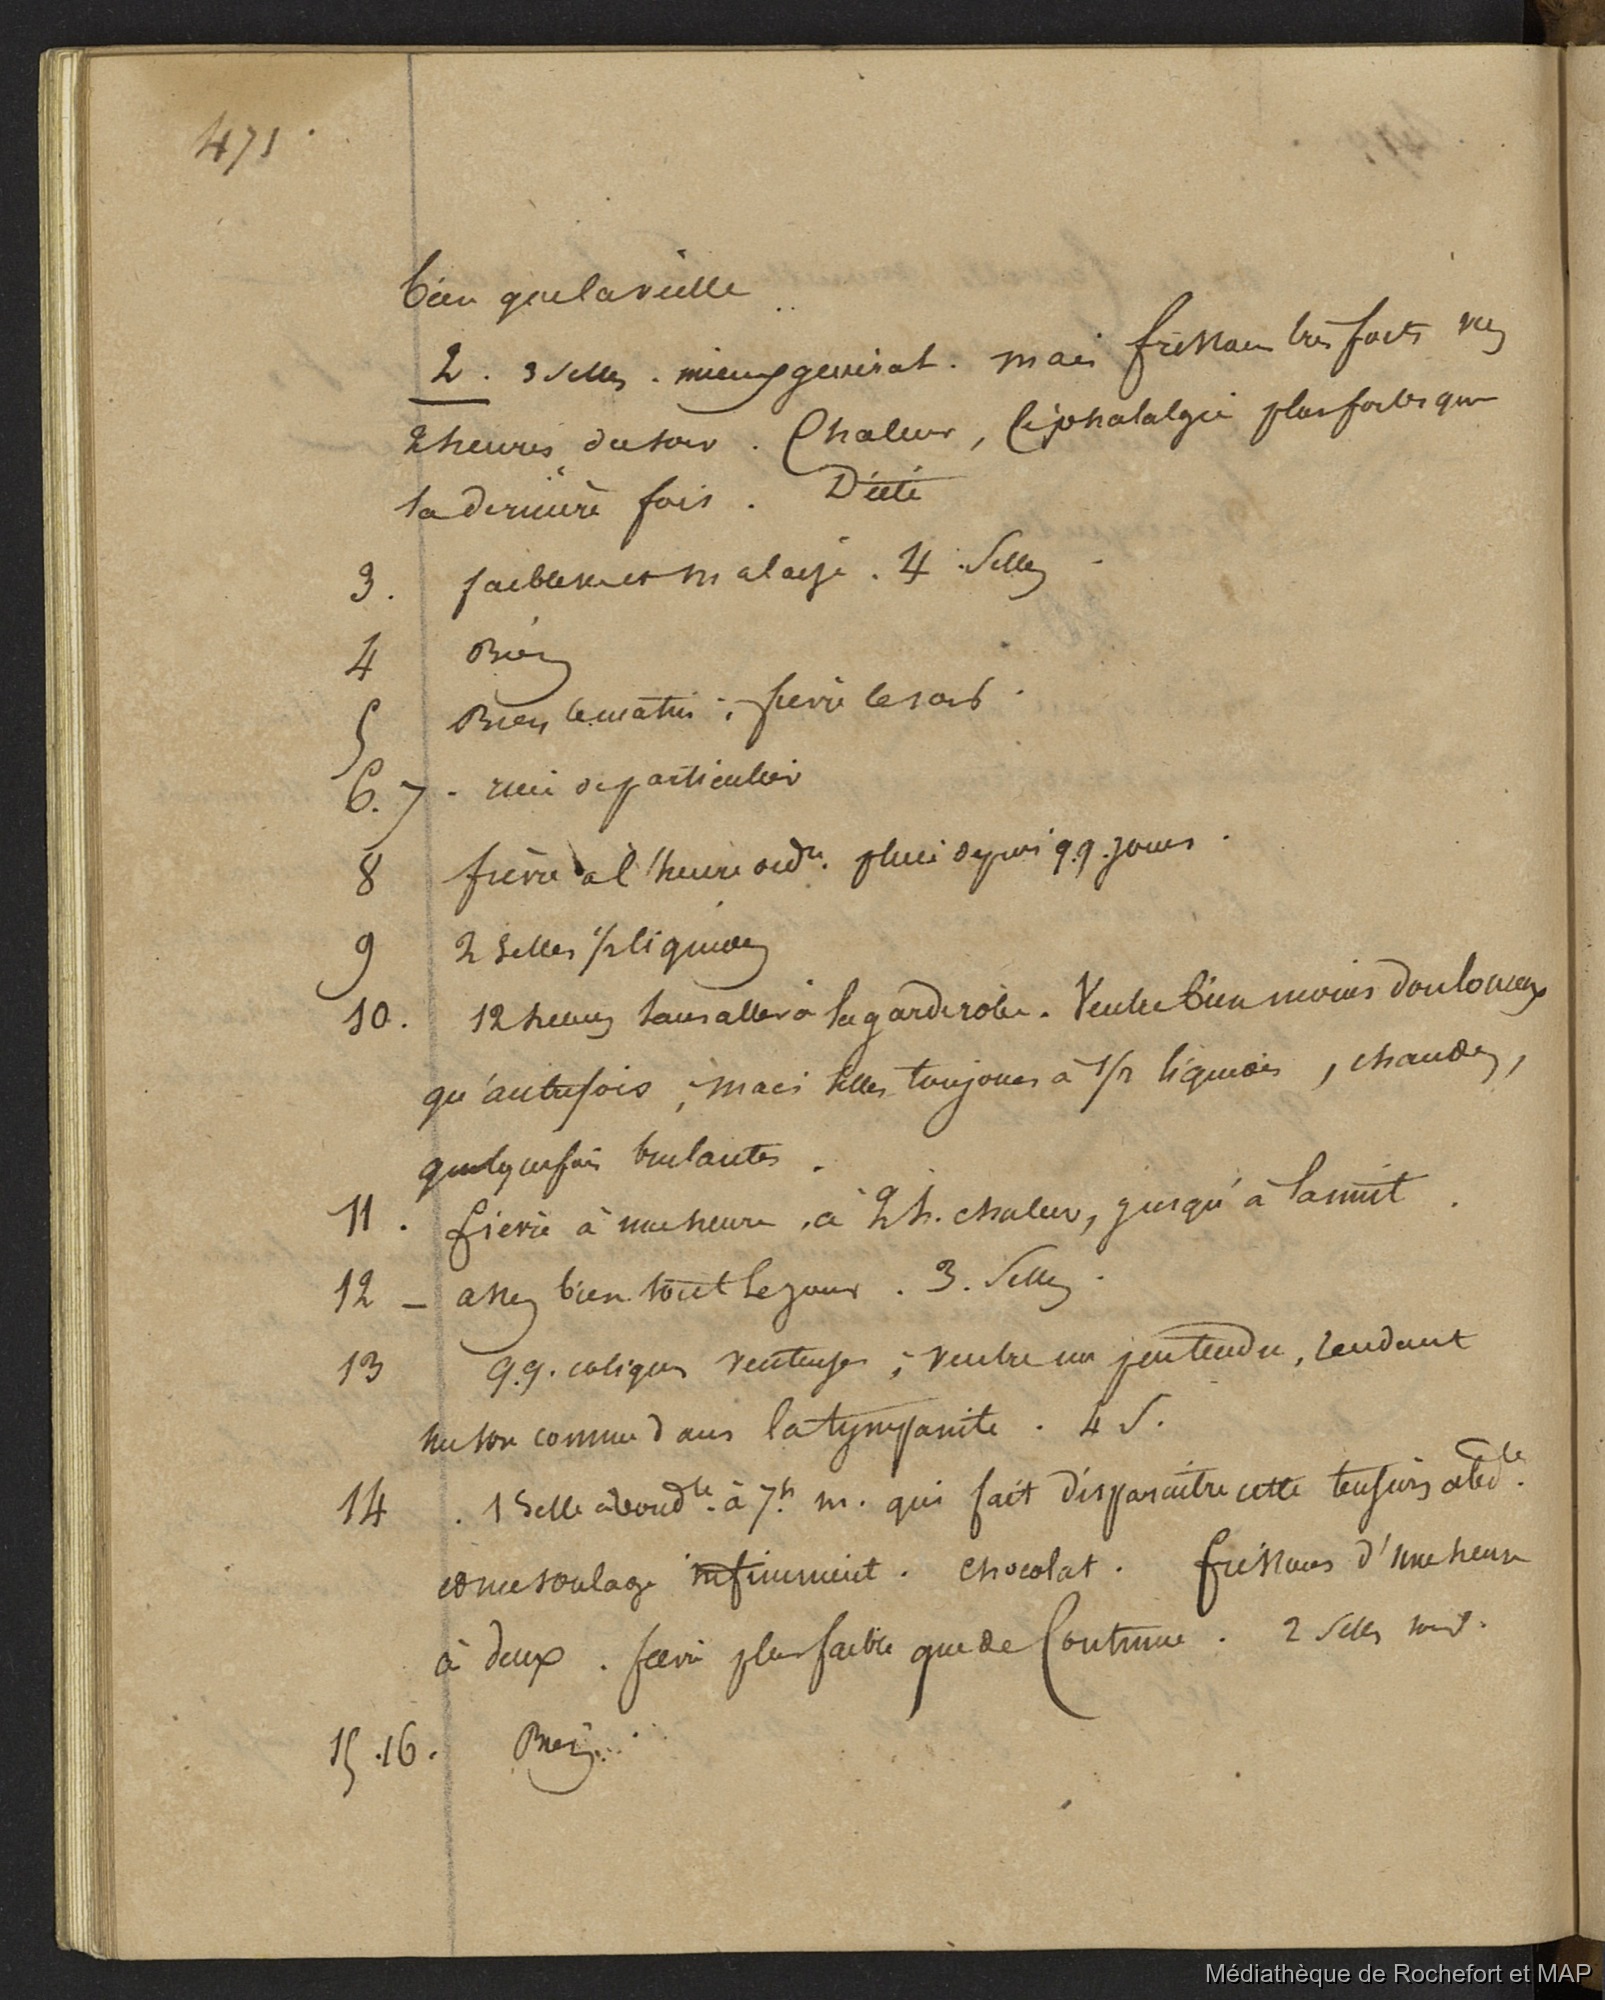 471.
bien que la veille
2. 3 selles. mieux général. mais frissons très forts vers
2 heures du soir. Chaleur, Céphalalgie plus fortes que
la dernière fois. Diète
3. faiblesse et malaise. 4 selles.
4 Bien
5 Bien le matin ; fièvre le soir.
6. 7 - rien de particulier
8 fièvre à l'heure ordre. pluie depuis q.q. jours.
9 2 selles 1/2 liquides
10. 12 heures sans aller à la garderobe. Ventre bien moins douloureux
qu'autrefois ; mais selles toujours à 1/2 liquides, chaudes,
quelquefois brulantes.
11. fièvre à une heure. à 2 h. chaleur, jusqu'à la nuit.
12 - assez bien tout le jour. 3. selles.
13 q.q. coliques venteuses ; ventre un peu tendu, rendant
un son comme dans la tympanite. 4 S.
14. 1 selle abondte. à 7h. m. qui fait disparaitre cette tension abdle.
et me soulage infiniment. chocolat. frissons d'une heure
à deux. fièvre plus faible que de Coutume. 2 selles
15. 16. Bien.
Médiathèque de Rochefort et MAP